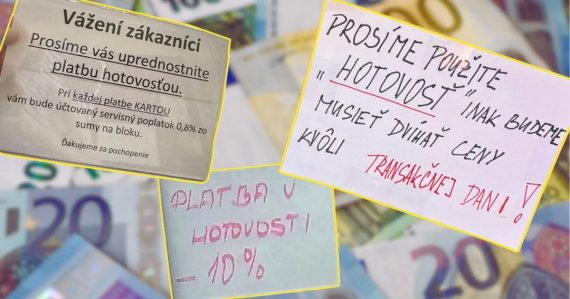 Vážení zákazníci
Prosíme vás uprednostnite
platbu hotovosťou.
Pri každej platbe KARTOU
vám bude účtovaný servisný poplatok 0,8% zo
sumy na bloku.
Ďakujeme za pochopenie
PROSÍME POUŽITE
„HOTOVOSŤ" INAK BUDEME
MUSIEŤ DVÍHAŤ CENY
KVÔLI TRANSAKČNEJ DANI!
PLATBA V
HOTOVOSTI
- 10%
20